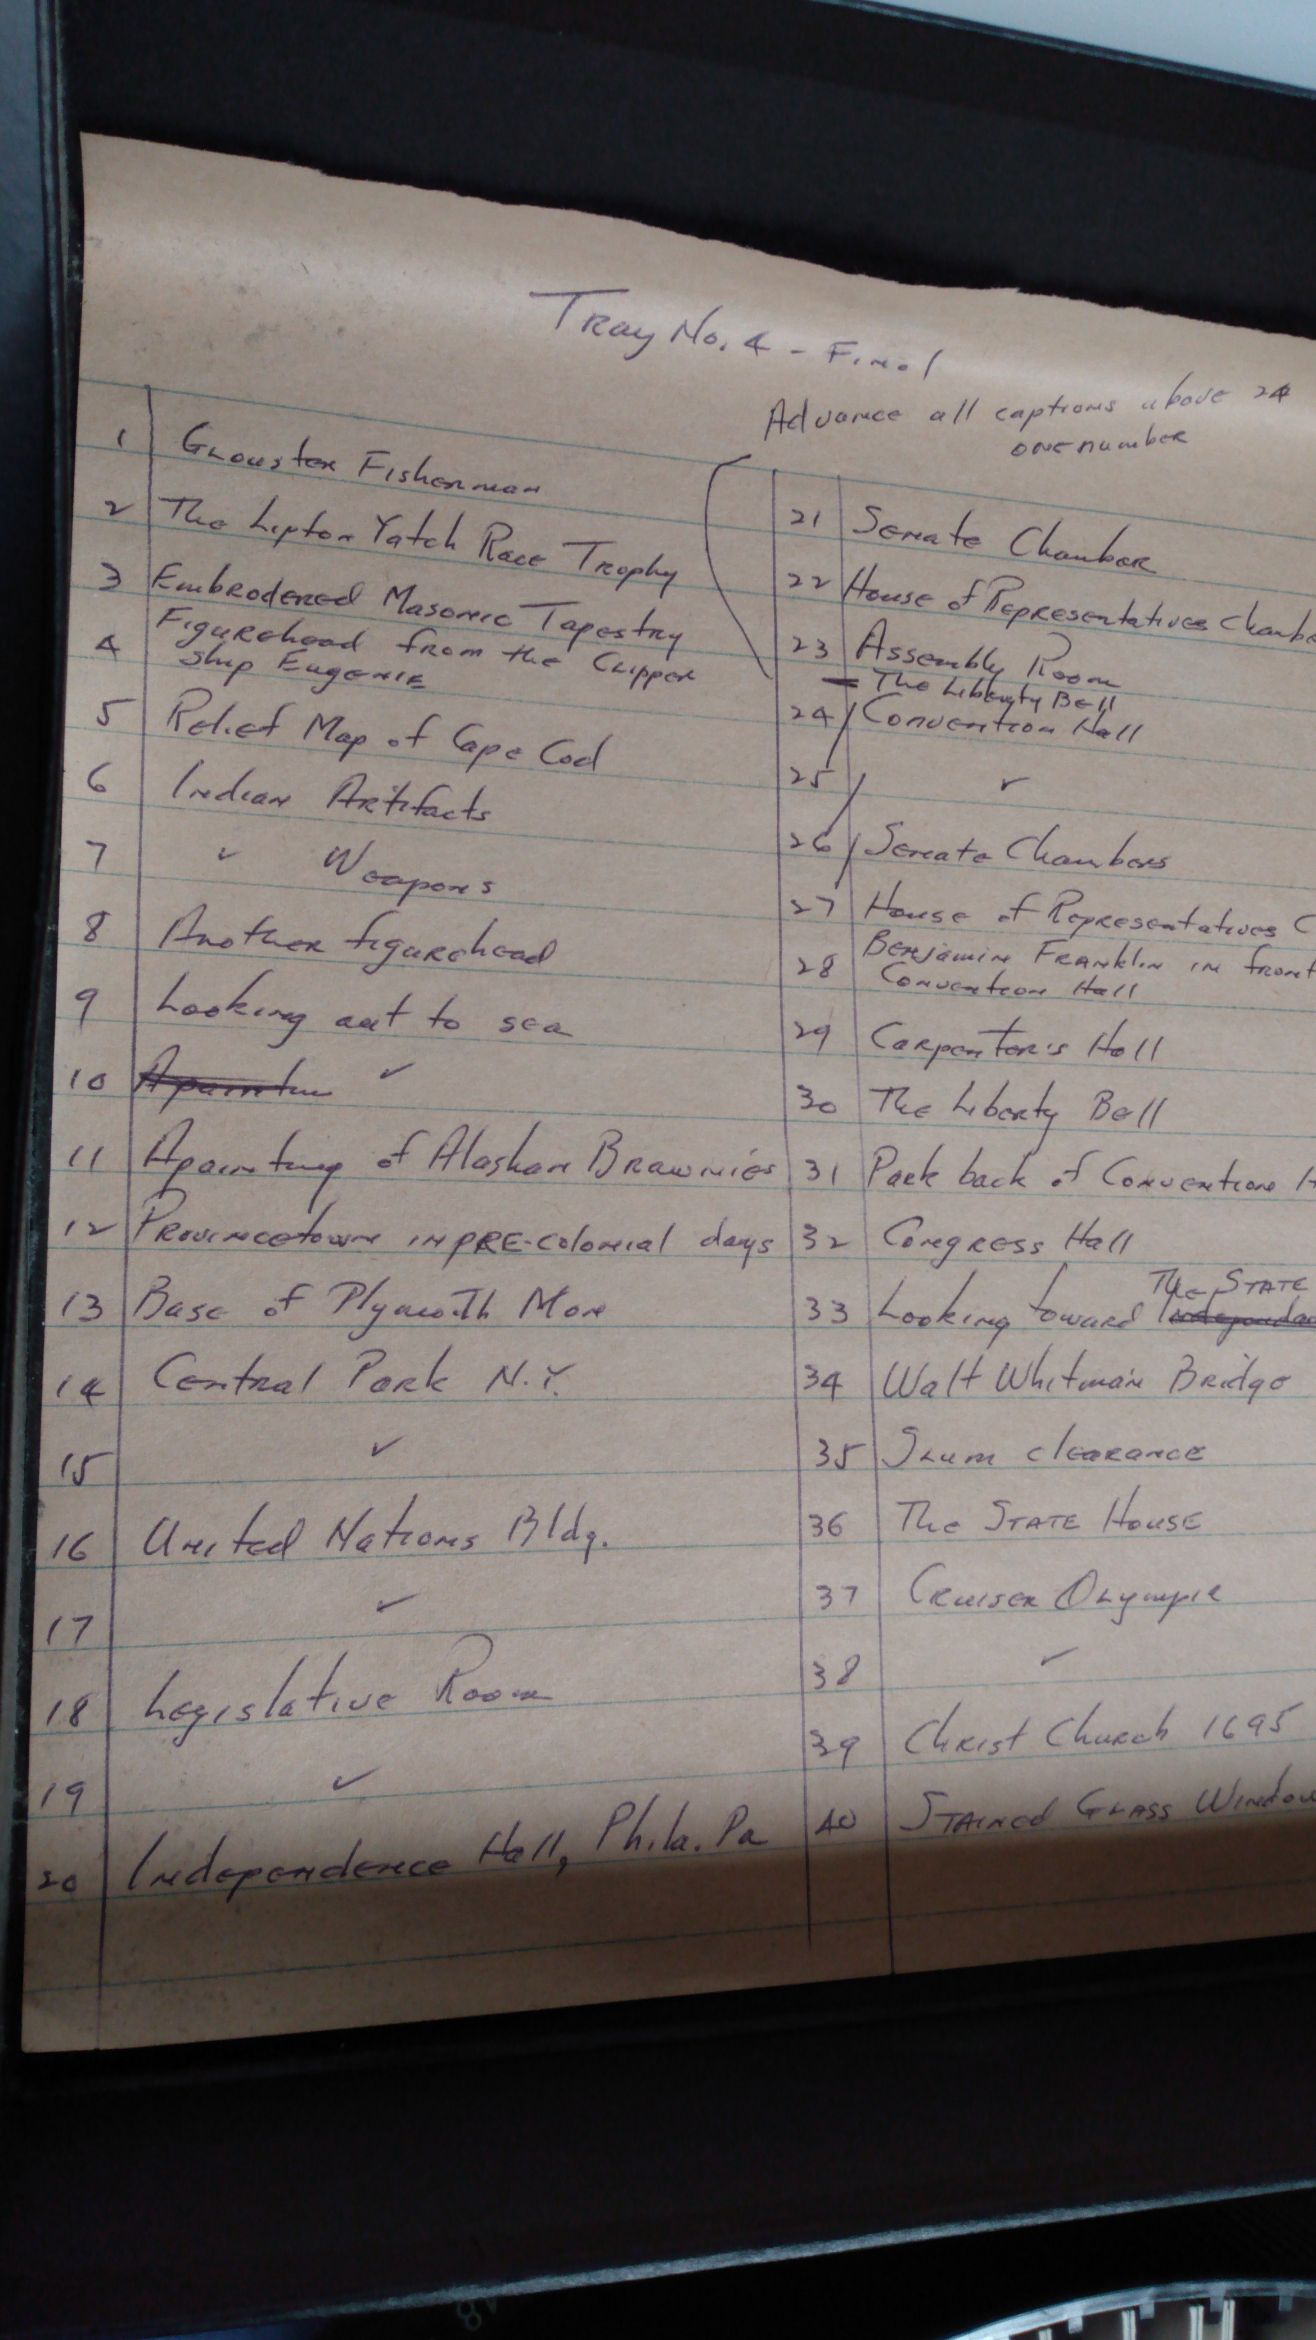 Tray No. 4 - Final
Advance all captions above 24
one number
1 Glouster Fisherman
2 The Lipton Yatch Race Trophy
3 Embrodered Masonic Tapestry
4 Figurehead from the Clipper
ship Eugenie
5 Relief Map of Cape Cod
6 Indian Artifacts
7 " Weapons
8 Another figurehead
9 Looking out to sea
10 "
11 A painting of Alaskan Brawnies
12 Provincetown in PRE-colonial days
13 Base of Plymouth Mon
14 Central Park N.Y.
15 "
16 United Nations Bldg.
17 "
18 Legislative Room
19 "
20 Independence Hall, Phila. Pa
21 Senate Chamber
22 House of Representatives Chambe
23 Assembly Room
- The Liberty Bell
24 Convention Hall
25 "
26 Senate Chambers
27 House of Representatives C
28 Benjamin Franklin in front
Convention Hall
29 Carpenter's Hall
30 The Liberty Bell
31 Park back of Convention H
32 Congress Hall
33 Looking toward The STATE
34 Walt Whitman Bridge
35 Slum clearance
36 The STATE House
37 Cruiser Olympic
38 "
39 Christ Church 1695
40 Stained Glass Window